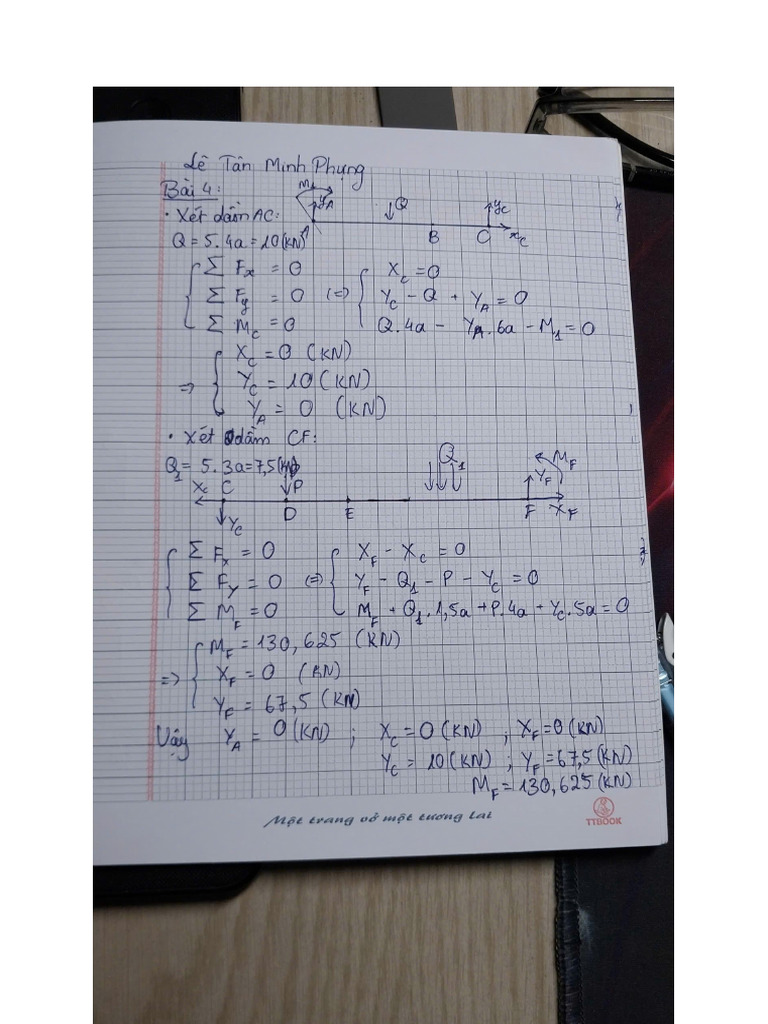 Lê Tân Minh Phụng
Bài 4:
• Xét dầm AC:
M₁ Y_A Q Y_C
B C X_C
Q = 5.4a = 10 (KN)
∑ F_x = 0 (=) X_C = 0
∑ F_y = 0 Y_C - Q + Y_A = 0
∑ M_C = 0 Q.4a - Y_A.6a - M₁ = 0
=> X_C = 0 (KN)
Y_C = 10 (KN)
Y_A = 0 (KN)
• Xét dầm CF:
Q₁ M_F
Q₁ = 5.3a = 7,5 (KN)
X_C C P Y_F
Y_C D E F X_F
∑ F_x = 0 X_F - X_C = 0
∑ F_y = 0 (=) Y_F - Q₁ - P - Y_C = 0
∑ M_F = 0 M_F + Q₁.1,5a + P.4a + Y_C.5a = 0
M_F = 130,625 (KN)
=> X_F = 0 (KN)
Y_F = 67,5 (KN)
Vậy Y_A = 0 (KN) ; X_C = 0 (KN) ; X_F = 0 (KN)
Y_C = 10 (KN) ; Y_F = 67,5 (KN)
M_F = 130,625 (KN)
Một trang vở một tương lai
TTBOOK